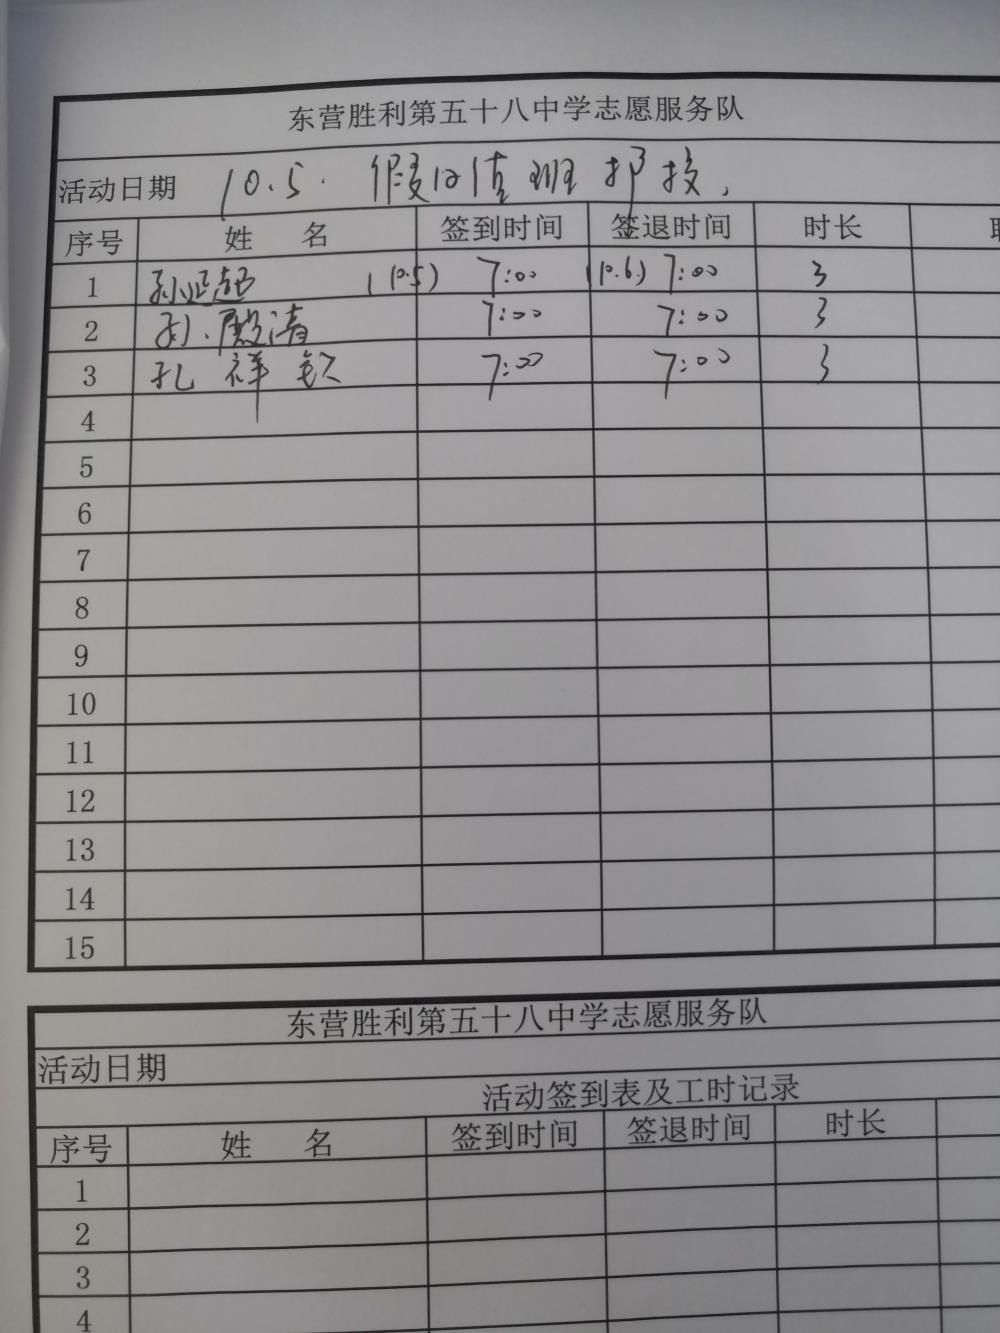 东营胜利第五十八中学志愿服务队
活动日期 10.5. 假日值班护校.
序号 姓 名 签到时间 签退时间 时长
1 孙正超 (10.5) 7:00 (10.6.) 7:00 3
2 殿清 7:00 7:00 3
3 孔祥钦 7:00 7:00 3
4
5
6
7
8
9
10
11
12
13
14
15
东营胜利第五十八中学志愿服务队
活动日期
活动签到表及工时记录
序号 姓 名 签到时间 签退时间 时长
1
2
3
4